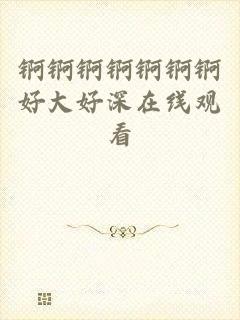 锕锕锕锕锕锕锕
好大好深在线观
看